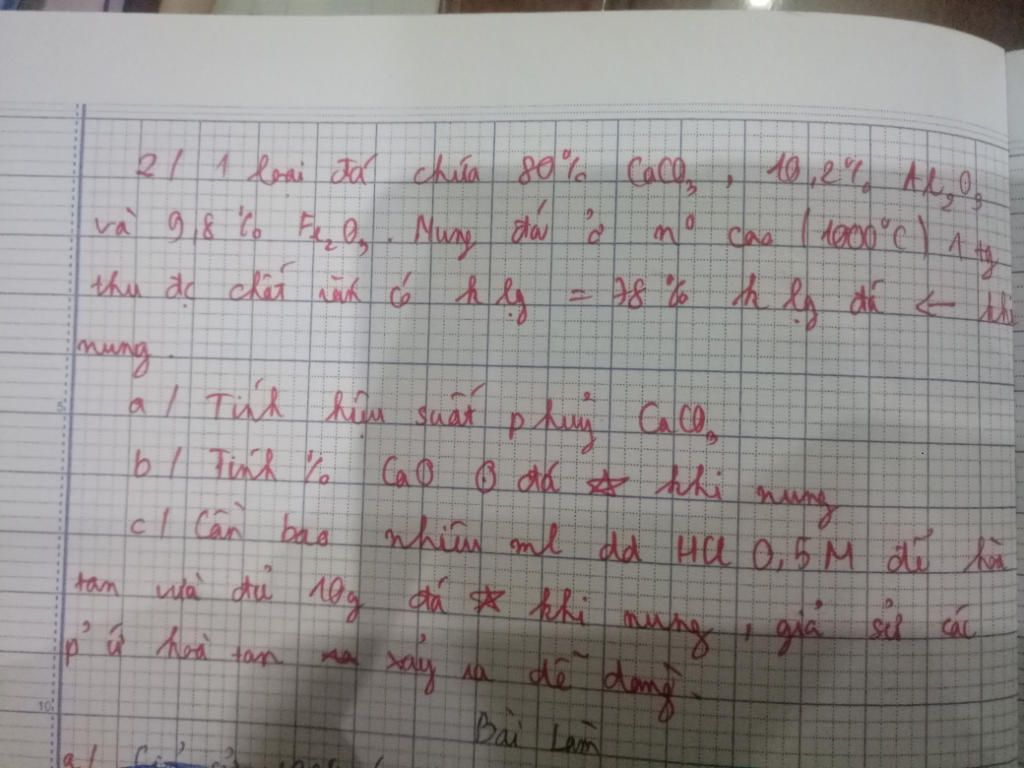 2/ 1 loại đá chứa 80% CaCO₃, 10,2% Al₂O₃
và 9,8% Fe₂O₃. Nung đá ở n° cao (1000°C) 1 tg
thu đc chất rắn có k lg = 78% k lg đá ← khi
nung.
a/ Tính hiệu suất p huỷ CaCO₃
b/ Tính % CaO đá ☆ khi nung
c/ Cần bao nhiêu ml dd HCl 0,5M để hoà
tan vừa đủ 10g đá ☆ khi nung, giả sử các
p² ứ hoà tan xảy ra dễ dàng.
Bài Làm
a/